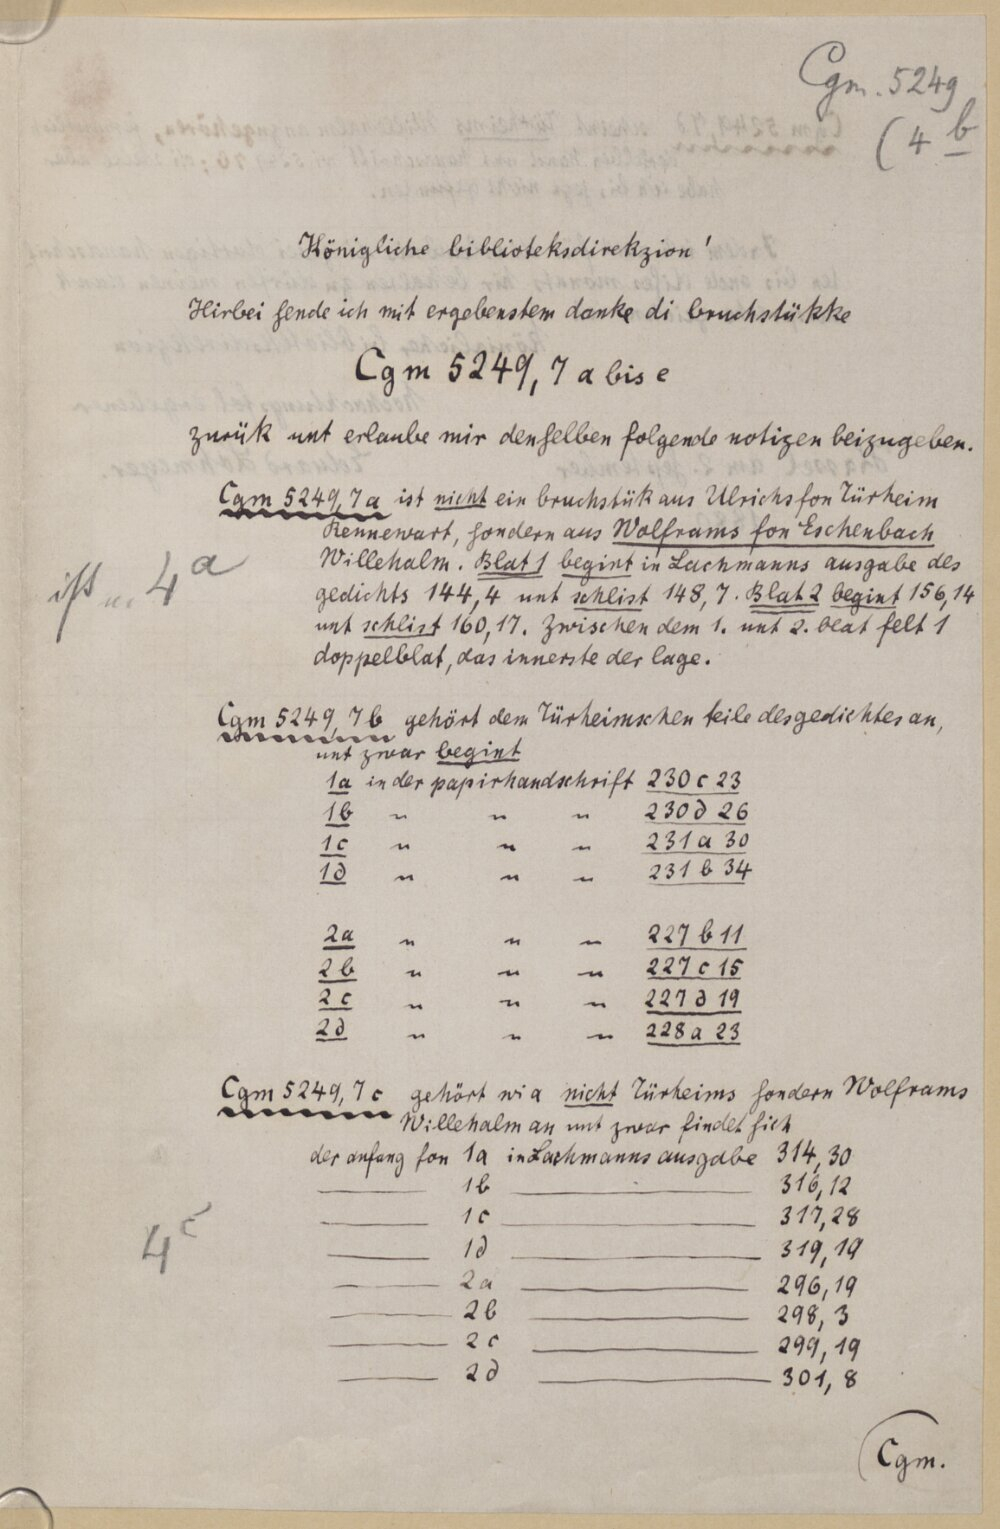 Cgm. 5249
(4 b
Königliche biblioteksdirekzion!
Hirbei sende ich mit ergebenstem danke di bruchstükke
Cgm 5249, 7 a bis e
zurük unt erlaube mir denselben folgende notizen beizugeben.
Cgm 5249, 7 a ist nicht ein bruchstük aus Ulrichs fon Türheim
Rennewart, sondern aus Wolframs fon Eschenbach
Willehalm. Blat 1 begint in Lachmanns ausgabe des
gedichts 144,4 unt schlist 148,7. Blat 2 begint 156,14
unt schlist 160,17. Zwischen dem 1. unt 2. blat felt 1
doppelblat, das innerste der lage.
ist 4 a
Cgm 5249, 7 b gehört dem Türheimschen teile des gedichtes an,
unt zwar begint
1a in der papirhandschrift 230 c 23
1b " " " 230 d 26
1c " " " 231 a 30
1d " " " 231 b 34
2a " " " 227 b 11
2b " " " 227 c 15
2c " " " 227 d 19
2d " " " 228 a 23
Cgm 5249, 7 c gehört wi a nicht Türheims sondern Wolframs
Willehalm an unt zwar findet sich
der anfang fon 1a in Lachmanns ausgabe 314,30
——— 1b ——— 316,12
——— 1c ——— 317,28
——— 1d ——— 319,19
——— 2a ——— 296,19
——— 2b ——— 298,3
——— 2c ——— 299,19
——— 2d ——— 301,8
4 c
Cgm.